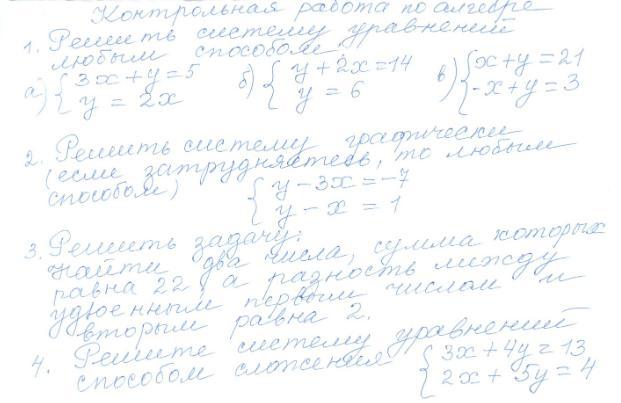 Контрольная работа по алгебре
1. Решить систему уравнений
любым способом
а) { 3x + y = 5
y = 2x
б) { y + 2x = 14
y = 6
в) { x + y = 21
-x + y = 3
2. Решить систему графически
(если затрудняетесь, то любым
способом)
{ y - 3x = -7
y - x = 1
3. Решить задачу:
Найти два числа, сумма которых
равна 22, а разность между
удвоенным первым числом и
вторым равна 2.
4. Решите систему уравнений
способом сложения
{ 3x + 4y = 13
2x + 5y = 4